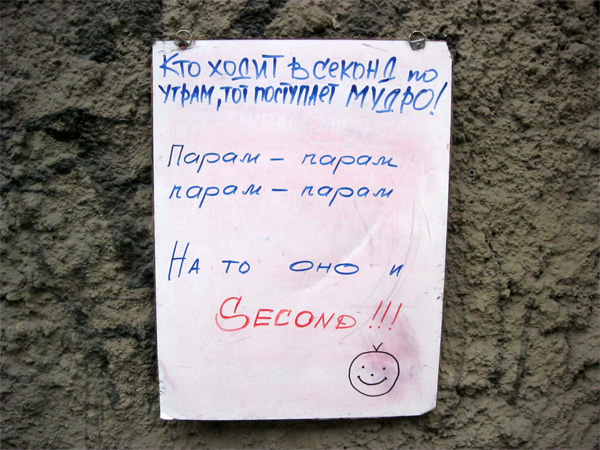 Кто ходит в секонд по
утрам, тот поступает МУДРО!
Парам - парам
парам - парам
На то оно и
SECOND!!!